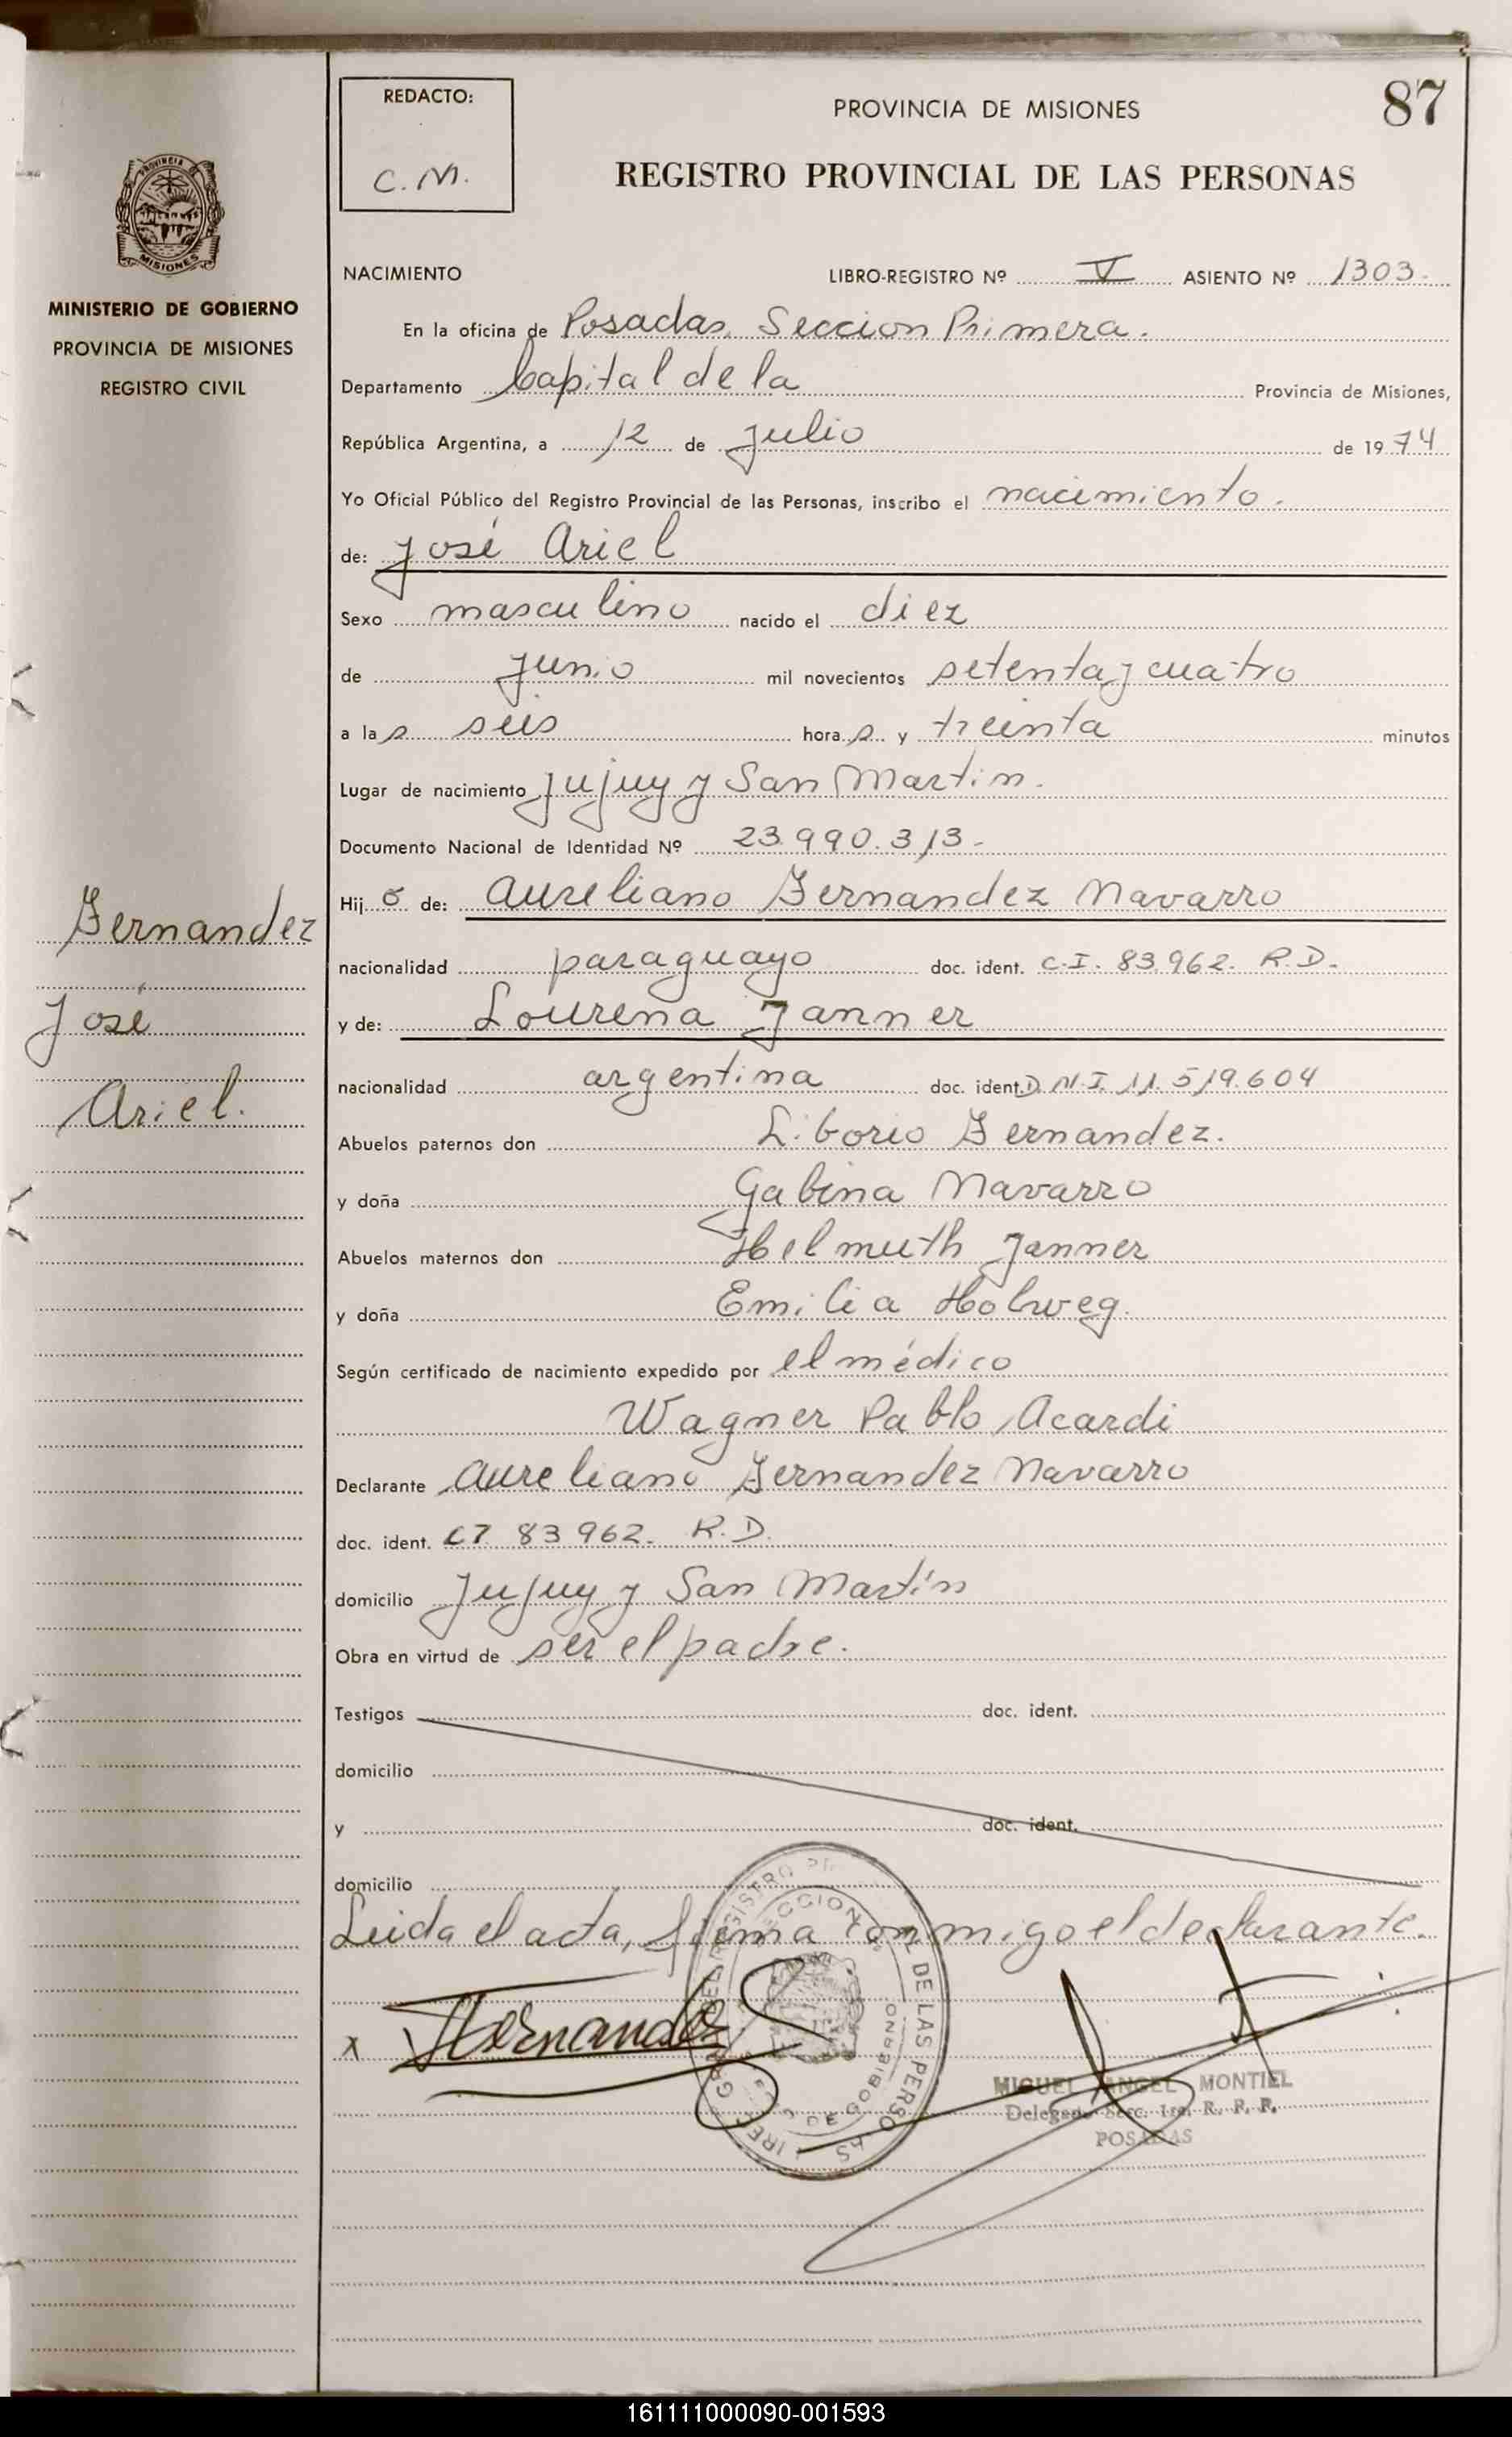 87
REDACTO:
C.M.
PROVINCIA DE MISIONES
REGISTRO PROVINCIAL DE LAS PERSONAS
PROVINCIA
MISIONES
MINISTERIO DE GOBIERNO
PROVINCIA DE MISIONES
REGISTRO CIVIL
Fernandez
José
Ariel.
NACIMIENTO LIBRO-REGISTRO Nº V ASIENTO Nº 1303.
En la oficina de Posadas, Seccion Primera.
Departamento Capital de la Provincia de Misiones,
República Argentina, a 12 de Julio de 1974
Yo Oficial Público del Registro Provincial de las Personas, inscribo el nacimiento.
de: José Ariel
Sexo masculino nacido el diez
de Junio mil novecientos setenta y cuatro
a las seis horas y treinta minutos
Lugar de nacimiento Jujuy y San Martin.
Documento Nacional de Identidad Nº 23.990.313-
Hijo de: Aureliano Fernandez Navarro
nacionalidad paraguayo doc. ident. C.I. 83.962. R.D.
y de: Lourena Janner
nacionalidad argentina doc. ident. D.N.I. 11.519.604
Abuelos paternos don Liborio Fernandez.
y doña Gabina Navarro
Abuelos maternos don Helmuth Janner
y doña Emilia Holweg.
Según certificado de nacimiento expedido por el médico
Wagner Pablo Acardi
Declarante Aureliano Fernandez Navarro
doc. ident. CI 83962. R.D.
domicilio Jujuy y San Martín
Obra en virtud de ser el padre.
Testigos doc. ident.
domicilio
y doc. ident.
domicilio
Leida el acta, firma conmigo el declarante.
x Fernandez
MIGUEL ANGEL MONTIEL
Delegado Secc. 1ra. R. P. P.
POSADAS
161111000090-001593